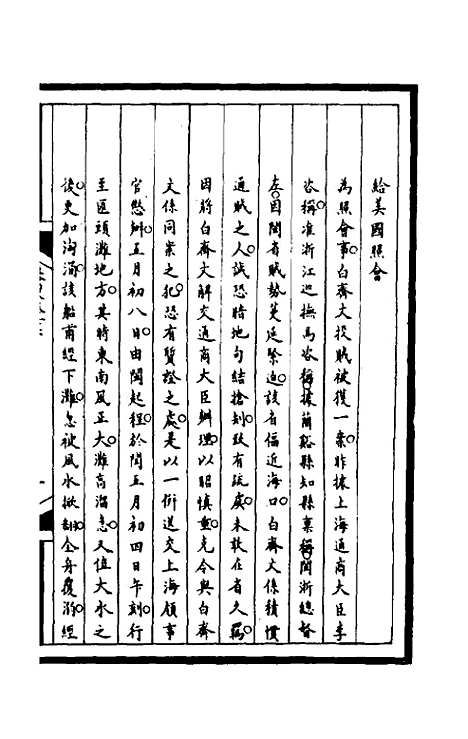 給美國照會
為照會事白齊文投賊被獲一案昨據上海通商大臣李
咨稱准浙江巡撫馬咨稱據蘭谿縣知縣稟稱閩浙總督
左因閩省賊勢蔓延緊迫該省偪近海口白齊文係積慣
通賊之人誠恐暗地勾結搶刦致有疏虞未敢在省久羈
因將白齊文解交通商大臣辦理以昭慎重克令與白齊
文係同案之犯恐有質證之處是以一併送交上海領事
官懲辦五月初八日由閩起程於閏五月初四日午刻行
至匯頭灘地方其時東南風正大灘高溜急又值大水之
後更加洶湧該船甫經下灘急被風水掀翻全身覆溺經